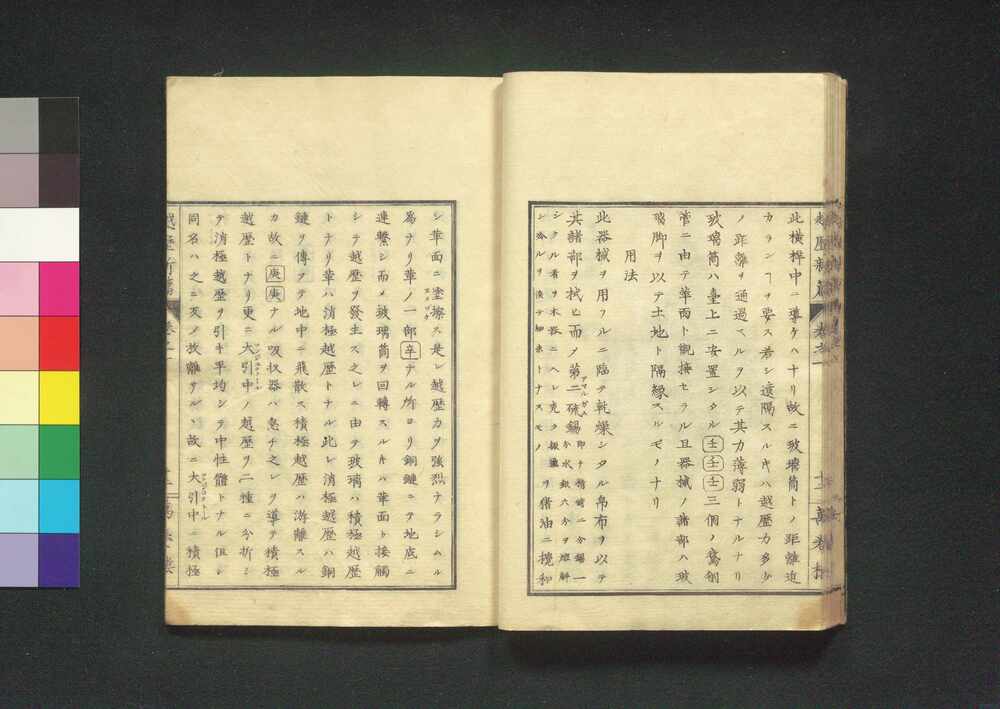 此横桿中ニ導ケハナリ故ニ玻璃筒トノ距離近
カランヿヲ要ス若シ遠隔スルキハ越歴力多ク
ノ距離ヲ通過スルヲ以テ其力薄弱トナルナリ
玻璃筒ハ臺上ニ安置シタル壬壬壬三個ノ
管ニ由テ革面ト觀接セラル且器械ノ諸部ハ玻
璃脚ヲ以テ土地ト隔縁スルモノナリ
用法
此器械ヲ用フルニ臨テ乾燥シタル帛布ヲ以テ
其諸部ヲ拭ヒ而ノ第二硫錫
アマルガム
即チ精錫二分錫一
分水銀六分ヲ熔解
シタル者ヲ木器ニヘレ克ク振盪
シ冷ルヲ俟テ細末トナスモノ
ヲ猪油ニ攪和
シ革面ニ塗擦ス是レ越歴力ヲ強烈ナラシムル
為ナリ革ノ一部辛ナル所ヨリ銅鏈ニテ地底ニ
連繋シ而メ玻璃筒ヲ回轉スルキハ革面ト接觸
シテ越歴ヲ發生ス之レニ由テ玻璃ハ積極越歴
トナリ革ハ消極越歴トナル此レ消極越歴ハ銅
鏈ヲ傳フテ地中ニ飛散ス積極越歴ハ游離スル
カ故ニ庚庚ナル吸収器ハ急チ之レヲ導テ積極
越歴トナリ更ニ大引中ノ越歴ヲ二種ニ分析シ
テ消極越歴ヲ引キ平均シテ中性體トナル但シ
同名ハ之ニ反ノ放離サル、故ニ大引中ニ積極